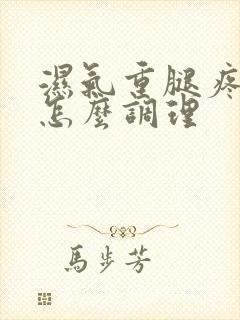 濕氣重腿疼
怎麼調理
馬步芳